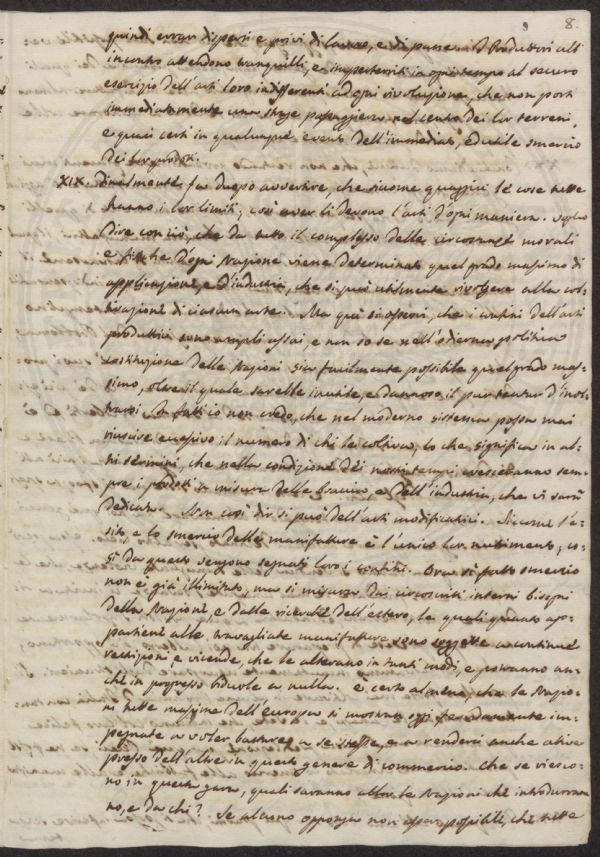 8.
quindi errar dispersi e privi di lavoro, e di pane. I Produttivi all'
incontro attendono tranquilli, e imperterriti in ogni tempo al sicuro
esercizio dell'arti loro indifferenti ad ogni rivoluzione, che non porti
immediatamente una strage passaggiera nel centro dei lor terreni,
e quasi certi in qualunque evento dell'immediato, ed utile smercio
dei lor prodotti.
XIX. Finalmente fa d'uopo avvertire, che siccome quaggiù le cose tutte
hanno i lor limiti, così aver li devono l'arti d'ogni maniera. Voglio
dire con ciò, che da tutto il complesso delle circostanze morali
e fisiche d'ogni Nazione viene determinato quel grado massimo di
applicazione, e d'industria, che si può utilmente rivolgere alla col-
tivazione di ciascun'arte. Ma qui si osservi, che i confini dell'arti
produttrici sono ampli assai, e non so se nell'odierna politica
costituzione delle Nazioni sia facilmente possibile quel grado mas-
simo, oltre il quale sarebbe inutile, e dannoso il pur tentar d'inol-
trarsi. In fatti io non credo, che nel moderno sistema possa mai
riuscire eccessivo il numero di chi le coltiva, lo che significa in al-
tri termini, che nella condizione dei nostri tempi cresceranno sem-
pre i prodotti a misura delle braccia, e dell'industria, che vi sarà
dedicata. Non così dir si può dell'arti modificatrici. Siccome l'e-
sito, e lo smercio delle manifatture è l'unico lor nutrimento, co-
sì da questo vengono segnati loro i confini. Ora sì fatto smercio
non è già illimitato, ma si misura dai circoscritti interni bisogni
della Nazione, e dalle ricerche dell'estero, le quali quanto ap-
partiene alle travagliate manifatture sono soggette a continue
restrizioni e vicende, che le alterano in tanti modi, e potranno an-
che in progresso ridurle a nulla. È certo almeno, che le Nazio-
ni tutte massime dell'Europa si mostrano oggi fervidamente im-
pegnate a voler bastare a se stesse, e a rendersi anche attive
presso dell'altre in questo genere di commercio. Che se riesco-
no in questa gara, quali saranno allora le Nazioni che introdurran-
no, e da chi? Se alcuno opponga non esser possibile, che tutte